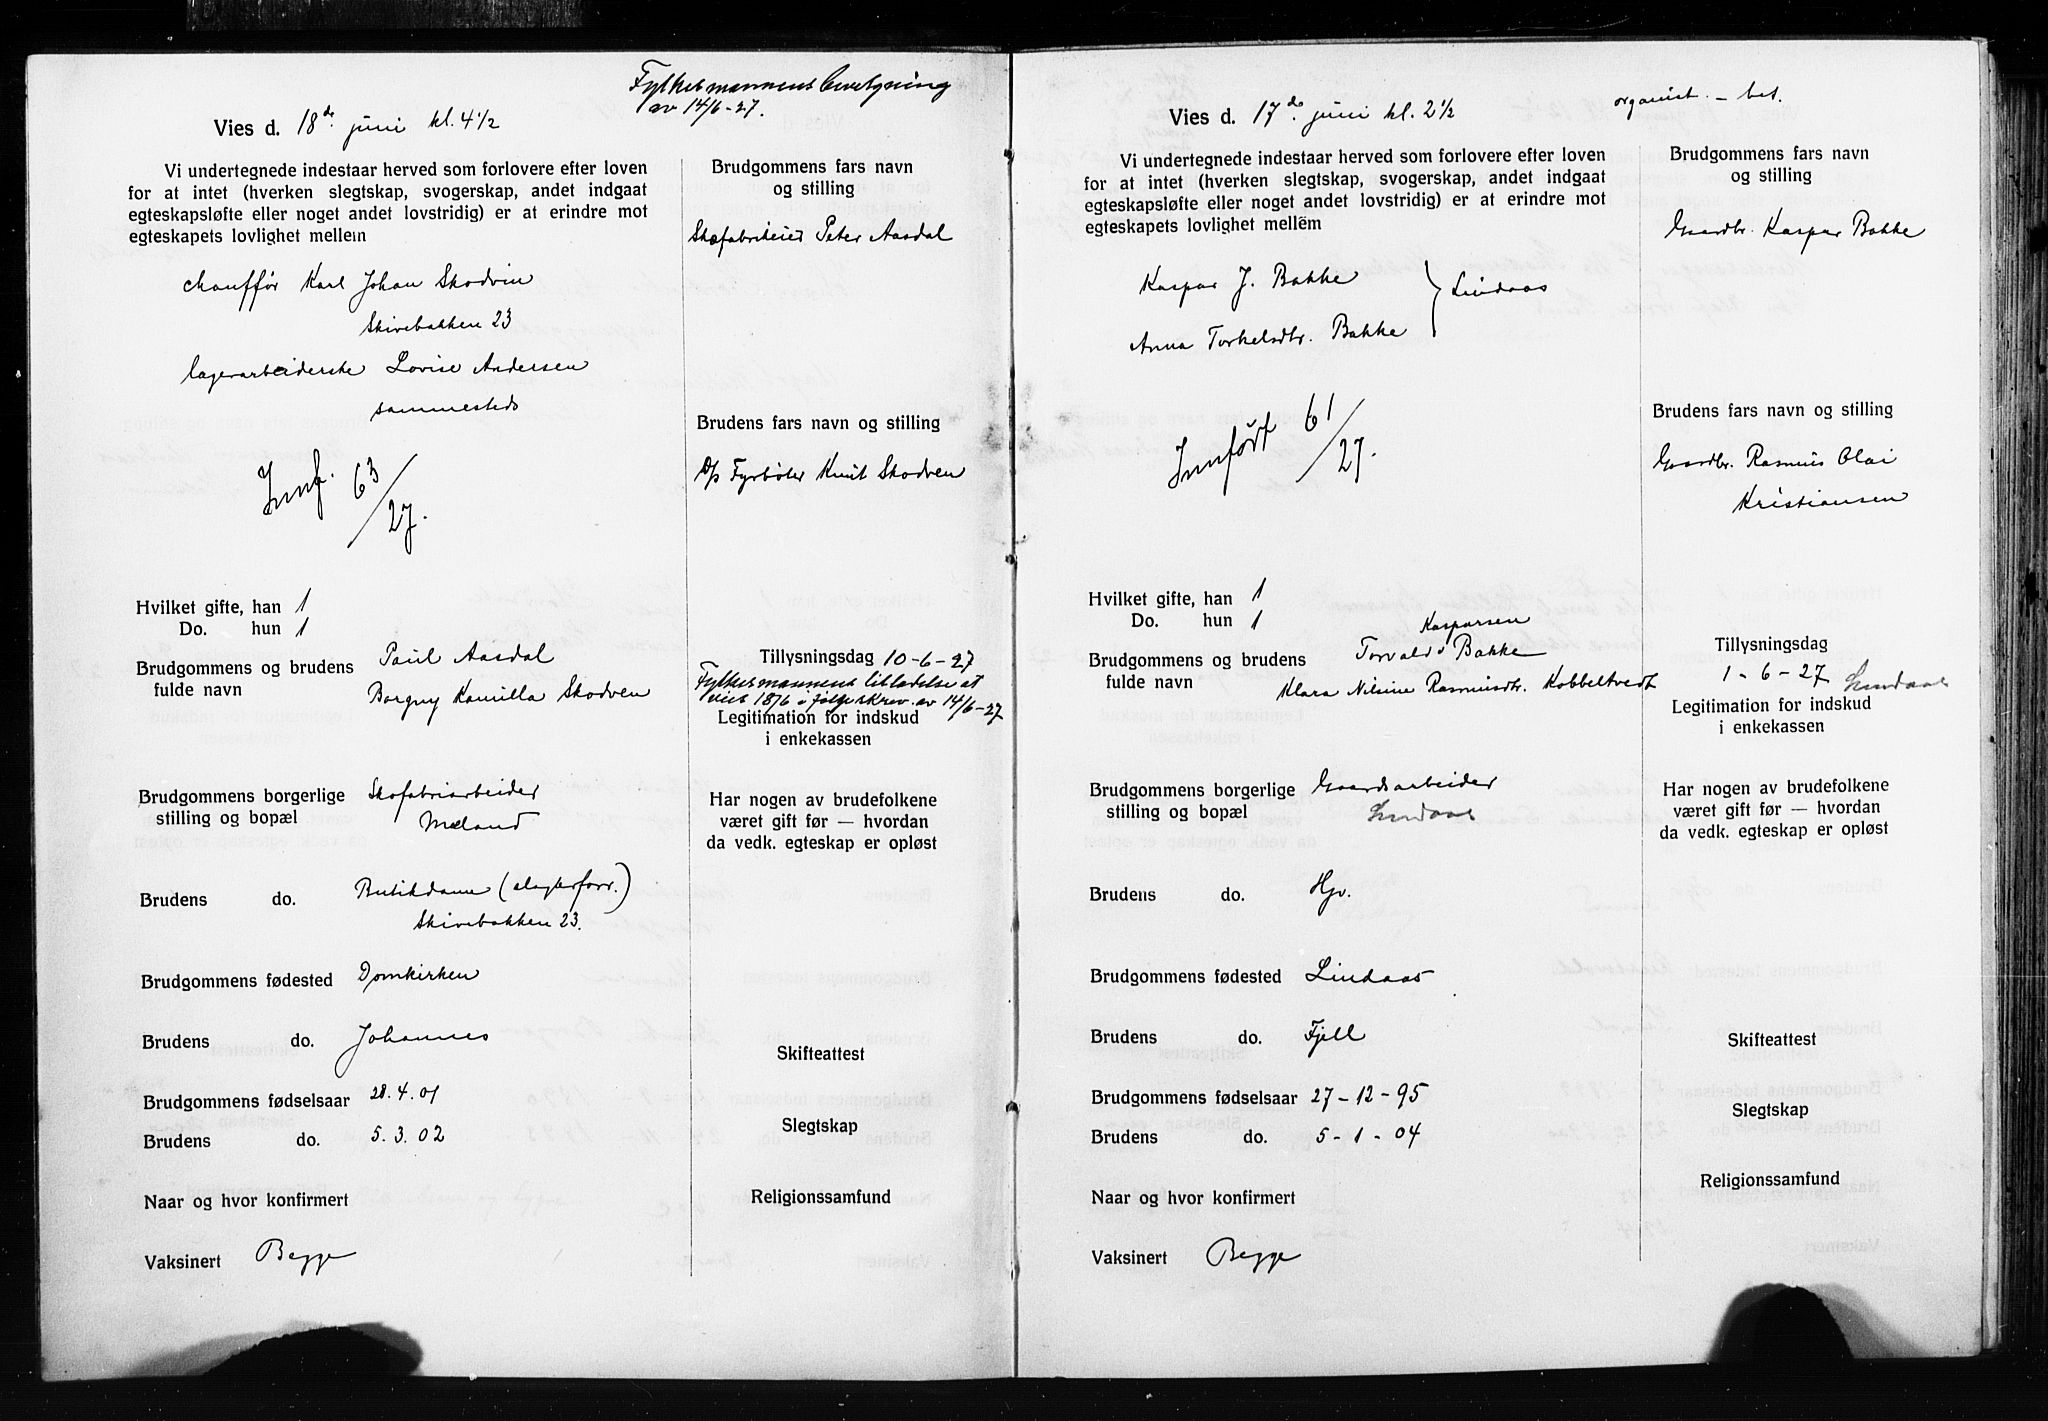 Fylkesmannens bevilgning
av 14/6-27.
Vies d. 18de juni kl. 4½
Vi undertegnede indestaar herved som forlovere efter loven
for at intet (hverken slegtskap, svogerskap, andet indgaat
egteskapsløfte eller noget andet lovstridig) er at erindre mot
egteskapets lovlighet mellem
chauffør Karl Johan Skodvin
Skivebakken 23
lagerarbeiderske Lovise Andersen
sammesteds
Innf. 63/27.
Brudgommens fars navn
og stilling
Skofabrikeier Peter Aasdal
Brudens fars navn og stilling
Fyrbøter Knut Skodven
Hvilket gifte, han 1
Do. hun 1
Brudgommens og brudens
fulde navn
Paul Aasdal
Borgny Kamilla Skodven
Tillysningsdag 10-6-27
Fylkesmannens tilladelse at
vies 18/6 i følge skrev. av 14/6-27
Legitimation for indskud
i enkekassen
Brudgommens borgerlige
stilling og bopæl
Skofabriarbeider
Meland
Har nogen av brudefolkene
været gift før — hvordan
da vedk. egteskap er opløst
Brudens do. Butikdame (slagterforr.)
Skivebakken 23.
Brudgommens fødested Domkirken
Brudens do. Johannes
Skifteattest
Brudgommens fødselsaar 28.4.01
Brudens do. 5.3.02
Slegtskap
Naar og hvor konfirmert
Religionssamfund
Vaksinert Begge
organist. – bet.
Vies d. 17de juni kl. 2½
Vi undertegnede indestaar herved som forlovere efter loven
for at intet (hverken slegtskap, svogerskap, andet indgaat
egteskapsløfte eller noget andet lovstridig) er at erindre mot
egteskapets lovlighet mellem
Kaspar J. Bakke
Anna Torkelsdtr. Bakke
} Lindaas
Innført 61/27.
Brudgommens fars navn
og stilling
Gaardbr. Kaspar Bakke
Brudens fars navn og stilling
Gaardbr. Rasmus Olai
Kristiansen
Hvilket gifte, han 1
Do. hun 1
Brudgommens og brudens
fulde navn
Kasparsen
Torvald Bakke
Klara Nilsine Rasmusdtr. Kobbeltvedt
Tillysningsdag
1-6-27 Lindaas
Legitimation for indskud
i enkekassen
Brudgommens borgerlige
stilling og bopæl
Gaardsarbeider
Lindaas
Har nogen av brudefolkene
været gift før — hvordan
da vedk. egteskap er opløst
Brudens do. Hjv.
Brudgommens fødested Lindaas
Brudens do. Fjell
Skifteattest
Brudgommens fødselsaar 27-12-95
Brudens do. 5-1-04
Slegtskap
Naar og hvor konfirmert
Religionssamfund
Vaksinert Begge